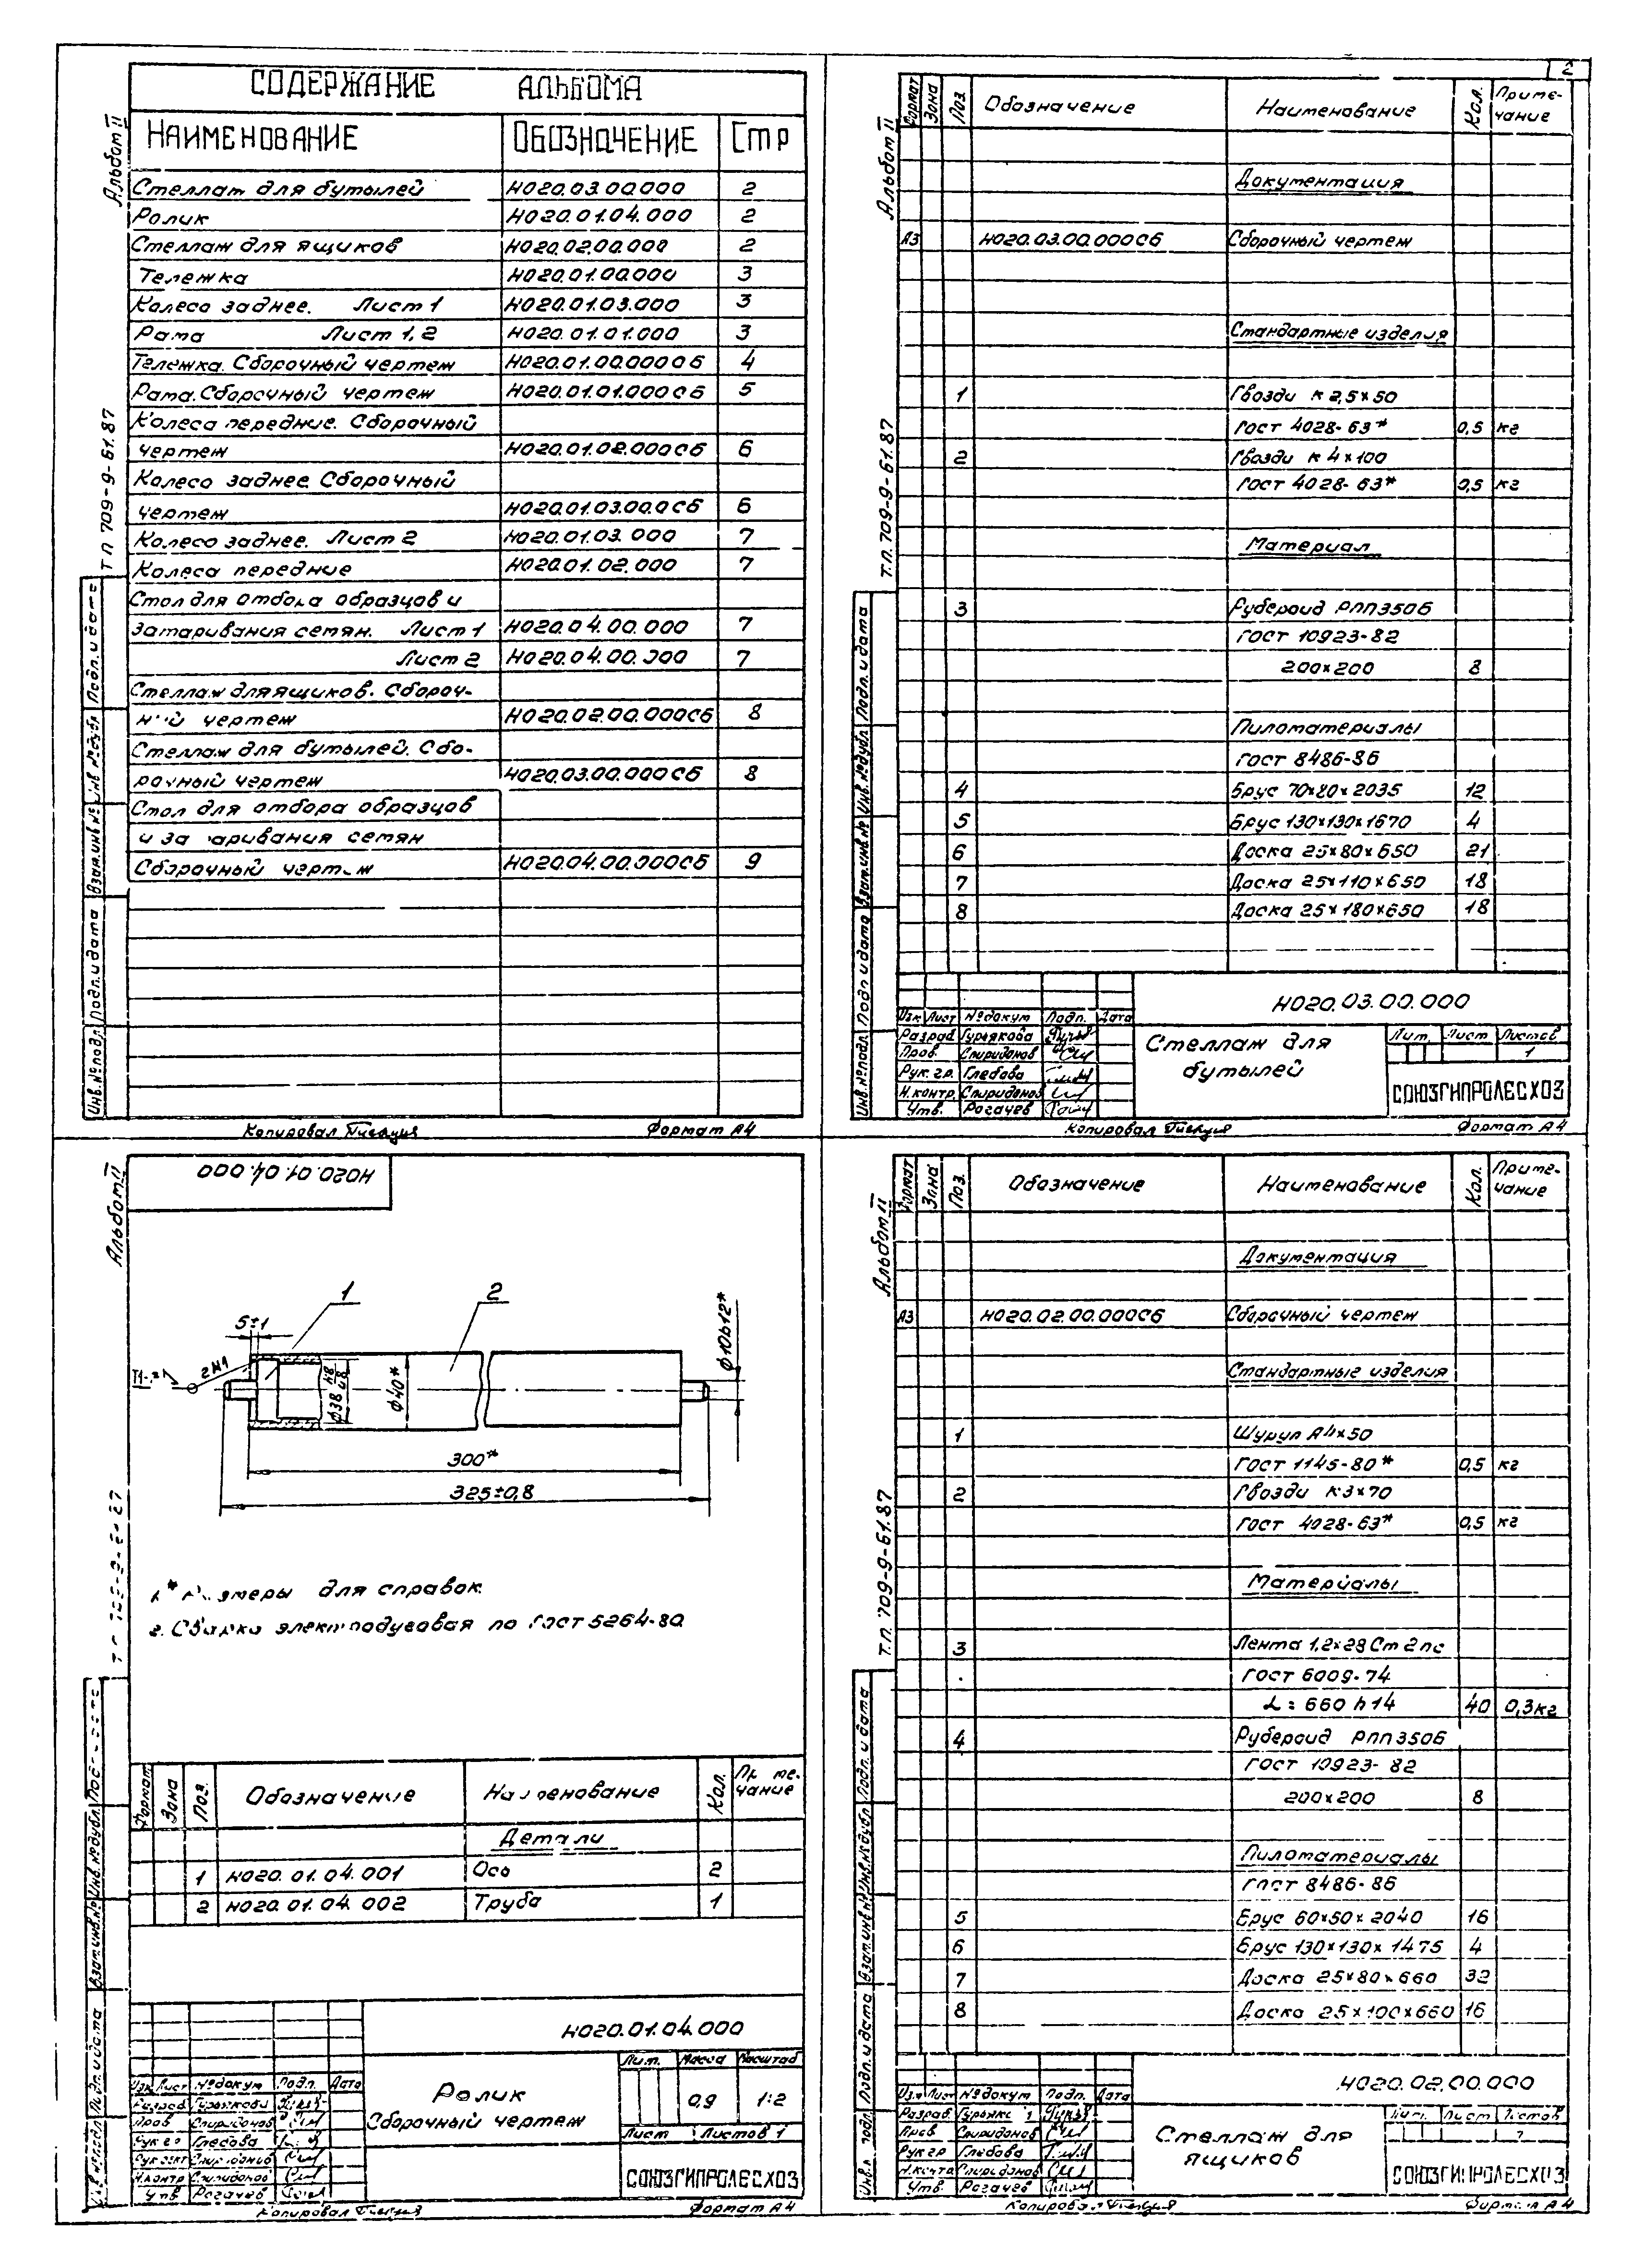 СОДЕРЖАНИЕ АЛЬБОМА
НАИМЕНОВАНИЕ ОБОЗНАЧЕНИЕ Стр
Стеллаж для бутылей Н020.03.00.000 2
Ролик Н020.01.04.000 2
Стеллаж для ящиков Н020.02.00.000 2
Тележка Н020.01.00.000 3
Колесо заднее. Лист 1 Н020.01.03.000 3
Рама Лист 1,2 Н020.01.01.000 3
Тележка. Сборочный чертеж Н020.01.00.000СБ 4
Рама. Сборочный чертеж Н020.01.01.000СБ 5
Колеса передние. Сборочный
чертеж Н020.01.02.000СБ 6
Колесо заднее. Сборочный
чертеж Н020.01.03.00.0СБ 6
Колесо заднее. Лист 2 Н020.01.03.000 7
Колеса передние Н020.01.02.000 7
Стол для отбора образцов и
затаривания семян. Лист 1 Н020.04.00.000 7
Лист 2 Н020.04.00.000 7
Стеллаж для ящиков. Сбороч-
ный чертеж Н020.02.00.000СБ 8
Стеллаж для бутылей. Сбо-
рочный чертеж Н020.03.00.000СБ 8
Стол для отбора образцов
и затаривания семян
Сборочный чертеж Н020.04.00.000СБ 9
Альбом II
ТП 709-9-61.87
Инв.№подл. Подп. и дата Взам.инв.№ Инв.№дубл. Подп. и дата
Копировал Формат А4
2
Формат Зона Поз. Обозначение Наименование Кол. Приме-
чание
Документация
А3 Н020.03.00.000СБ Сборочный чертеж
Стандартные изделия
1 Гвозди К 2,5×50
ГОСТ 4028-63* 0,5 кг
2 Гвозди К 4×100
ГОСТ 4028-63* 0,5 кг
Материал
3 Рубероид РПП350Б
ГОСТ 10923-82
200×200 8
Пиломатериалы
ГОСТ 8486-86
4 Брус 70×80×2035 12
5 Брус 130×130×1670 4
6 Доска 25×80×650 21
7 Доска 25×110×650 18
8 Доска 25×180×650 18
Н020.03.00.000
Изм Лист №докум Подп. Дата
Разраб Гурьякова
Пров. Спиридонов
Рук. гр. Глебова
Н.контр. Спиридонов
Утв. Рогачев
Стеллаж для
бутылей
Лит. Лист Листов
1
СОЮЗГИПРОЛЕСХОЗ
Альбом II
Т.П. 709-9-61.87
Инв.№подл. Подп и дата Взам.инв.№ Инв.№дубл. Подп. и дата
Копировал Формат А4
Альбом II
Н020.01.04.000
1 2
5±1
ϕ38 H8
ϕ40*
ϕ10b12*
300*
325±0,8
1.* Размеры для справок.
2. Сварка электродуговая по ГОСТ 5264-80
Формат Зона Поз. Обозначение Наименование Кол. Приме-
чание
Детали
1 Н020.01.04.001 Ось 2
2 Н020.01.04.002 Труба 1
Н020.01.04.000
Изм Лист №докум Подп. Дата
Разраб Гурьякова
Пров Спиридонов
Рук гр Глебова
Спиридонов
Н.контр Спиридонов
Утв Рогачев
Ролик
Сборочный чертеж
Лит. Масса Масштаб
0,9 1:2
Лист Листов 1
СОЮЗГИПРОЛЕСХОЗ
Копировал Формат А4
Формат Зона Поз. Обозначение Наименование Кол. Приме-
чание
Документация
А3 Н020.02.00.000СБ Сборочный чертеж
Стандартные изделия
1 Шуруп А4×50
ГОСТ 1145-80* 0,5 кг
2 Гвозди К3×70
ГОСТ 4028-63* 0,5 кг
Материалы
3 Лента 1,2×28 Ст 2 пс
ГОСТ 6009-74
L=660 h14 40 0,3кг
4 Рубероид РПП350Б
ГОСТ 10923-82
200×200 8
Пиломатериалы
ГОСТ 8486-86
5 Брус 60×50×2040 16
6 Брус 130×130×1475 4
7 Доска 25×80×660 32
8 Доска 25×100×660 16
Н020.02.00.000
Изм Лист №докум Подп. Дата
Разраб.
Пров Спиридонов
Рук гр Глебова
Н.контр Спиридонов
Утв. Рогачев
Стеллаж для
ящиков
Лит. Лист Листов
СОЮЗГИПРОЛЕСХОЗ
Альбом II
Т.П. 709-9-61.87
Копировал Формат А4